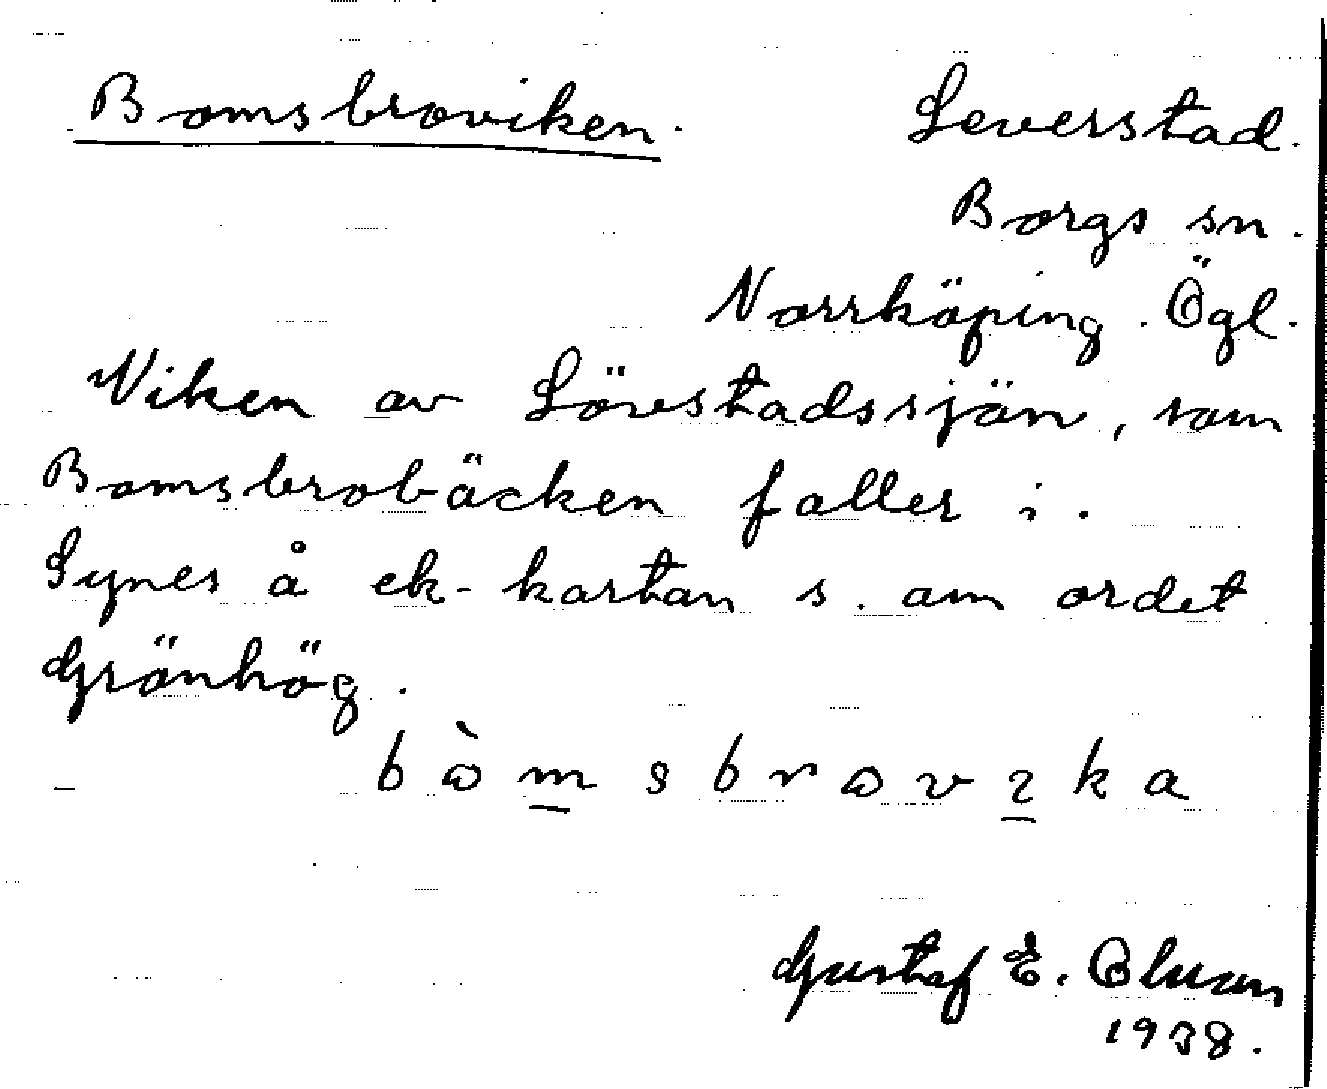 Bomsbroviken. Leverstad.
Borgs sn.
Norrköping. Ögl.
Viken av Lövstadssjön, som
Bomsbrobäcken faller i.
Synes å ek-kartan s. om ordet
Grönhög.
Gustaf E.
1938.